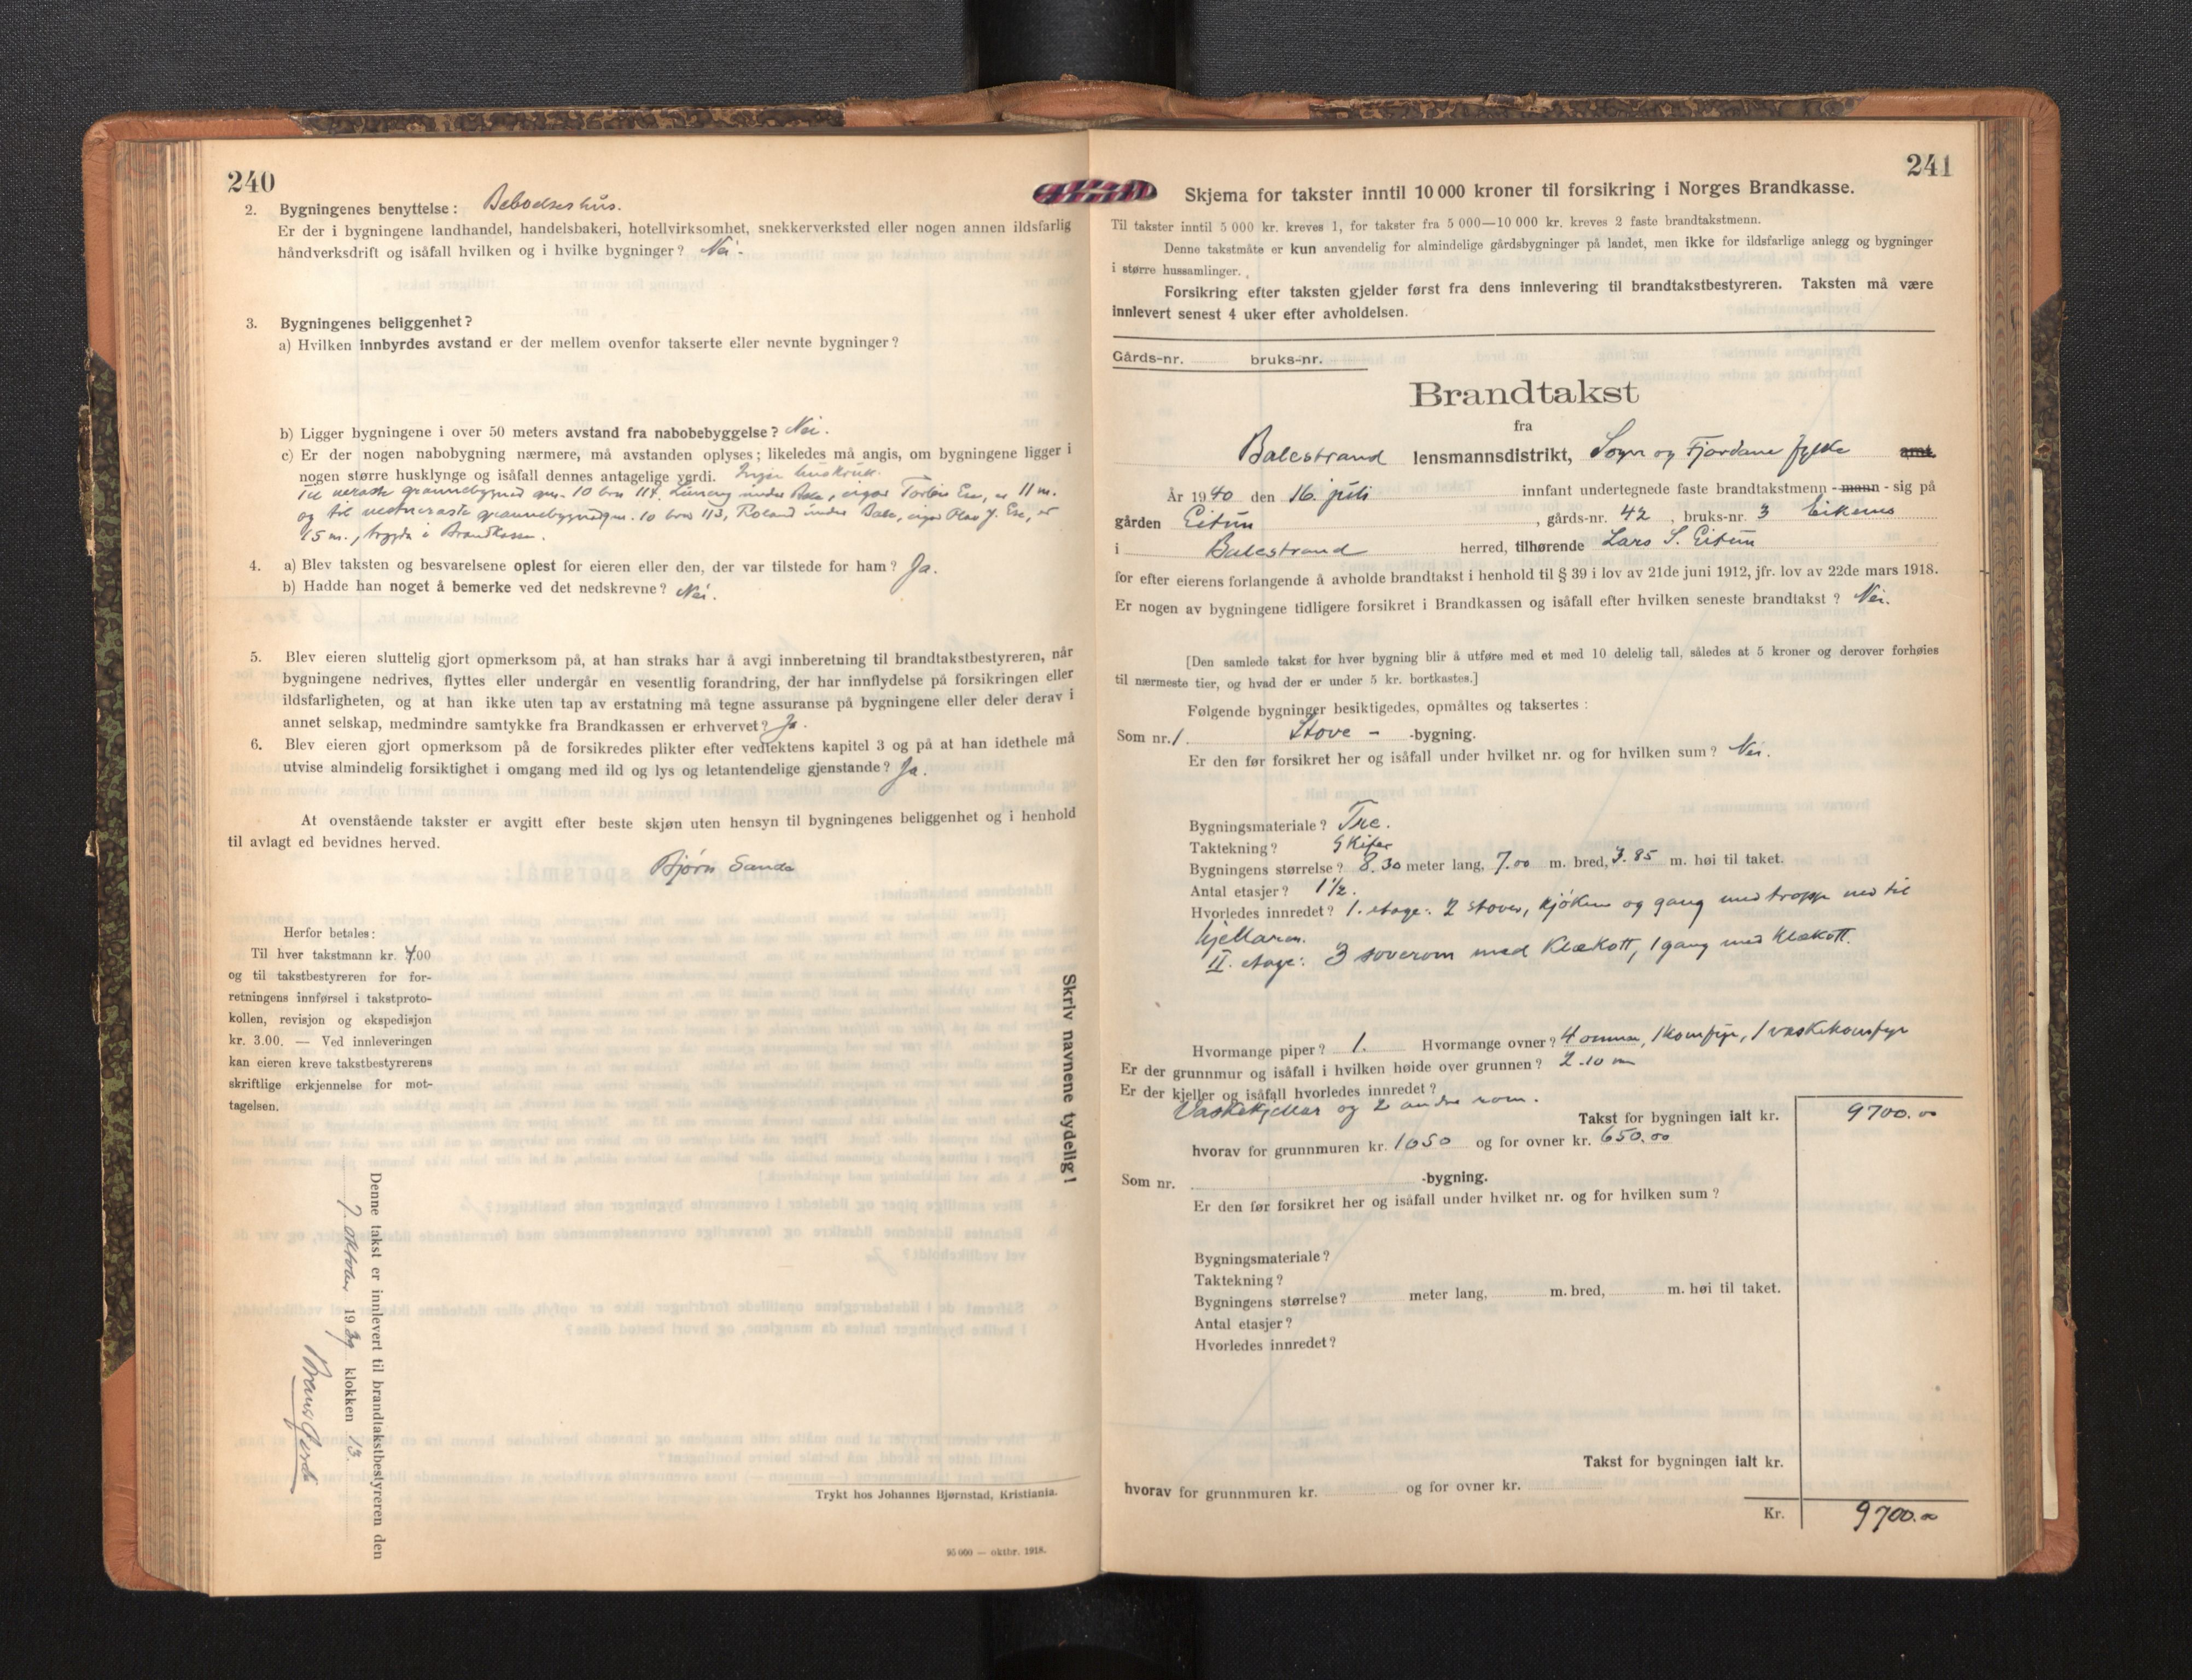 240
2. Bygningenes benyttelse: Beboelseshus.
Er der i bygningene landhandel, handelsbakeri, hotellvirksomhet, snekkerverksted eller nogen annen ildsfarlig
håndverksdrift og isåfall hvilken og i hvilke bygninger? Nei.
3. Bygningenes beliggenhet?
a) Hvilken innbyrdes avstand er der mellem ovenfor takserte eller nevnte bygninger?
b) Ligger bygningene i over 50 meters avstand fra nabobebyggelse? Nei.
c) Er der nogen nabobygning nærmere, må avstanden oplyses; likeledes må angis, om bygningene ligger i
nogen større husklynge og isåfall dennes antagelige verdi. Ingen
Til næraste grannebygnad gnr. 10 bnr 117, under Bale, eigar Torleiv Ese, er 11 m.
og til nestnæraste grannebygnad gnr. 10 bnr 113, Roland under Bale, eigar Olav J. Ese, er
15 m., trygda i Brandkassen.
4. a) Blev taksten og besvarelsene oplest for eieren eller den, der var tilstede for ham? Ja.
b) Hadde han noget å bemerke ved det nedskrevne? Nei.
5. Blev eieren sluttelig gjort opmerksom på, at han straks har å avgi innberetning til brandtakstbestyreren, når
bygningene nedrives, flyttes eller undergår en vesentlig forandring, der har innflydelse på forsikringen eller
ildsfarligheten, og at han ikke uten tap av erstatning må tegne assuranse på bygningene eller deler derav i
annet selskap, medmindre samtykke fra Brandkassen er erhvervet? Ja.
6. Blev eieren gjort opmerksom på de forsikredes plikter efter vedtektens kapitel 3 og på at han idethele må
utvise almindelig forsiktighet i omgang med ild og lys og letantendelige gjenstande? Ja.
At ovenstående takster er avgitt efter beste skjøn uten hensyn til bygningenes beliggenhet og i henhold
til avlagt ed bevidnes herved.
Bjørn Sande
Herfor betales:
Til hver takstmann kr. 4.00
og til takstbestyreren for for-
retningens innførsel i takstproto-
kollen, revisjon og ekspedisjon
kr. 3.00. — Ved innleveringen
kan eieren kreve takstbestyrerens
skriftlige erkjennelse for mot-
tagelsen.
Skriv navnene tydelig!
Denne takst er innlevert til brandtakstbestyreren den
7. oktober 1939 klokken 13.
Trykt hos Johannes Bjørnstad, Kristiania.
95 000 — oktbr. 1918.
241
Skjema for takster inntil 10 000 kroner til forsikring i Norges Brandkasse.
Til takster inntil 5 000 kr. kreves 1, for takster fra 5 000—10 000 kr. kreves 2 faste brandtakstmenn.
Denne takstmåte er kun anvendelig for almindelige gårdsbygninger på landet, men ikke for ildsfarlige anlegg og bygninger
i større hussamlinger.
Forsikring efter taksten gjelder først fra dens innlevering til brandtakstbestyreren. Taksten må være
innlevert senest 4 uker efter avholdelsen.
Gårds-nr. bruks-nr.
Brandtakst
fra
Balestrand lensmannsdistrikt, Sogn og Fjordane fylke amt.
År 1940 den 16. juli innfant undertegnede faste brandtakstmenn - mann - sig på
gården Eitun, gårds-nr. 42, bruks-nr. 3 Eikenes
i Balestrand herred, tilhørende Lars S. Eitun
for efter eierens forlangende å avholde brandtakst i henhold til § 39 i lov av 21de juni 1912, jfr. lov av 22de mars 1918.
Er nogen av bygningene tidligere forsikret i Brandkassen og isåfall efter hvilken seneste brandtakst? Nei.
[Den samlede takst for hver bygning blir å utføre med et med 10 delelig tall, således at 5 kroner og derover forhøies
til nærmeste tier, og hvad der er under 5 kr. bortkastes.]
Følgende bygninger besiktigedes, opmåltes og taksertes:
Som nr. 1 Stove - -bygning.
Er den før forsikret her og isåfall under hvilket nr. og for hvilken sum? Nei.
Bygningsmateriale? Tre.
Taktekning? Skifer
Bygningens størrelse? 8.30 meter lang, 7.00 m. bred, 3.85 m. høi til taket.
Antal etasjer? 1 1/2.
Hvorledes innredet? 1. etage: 2 stover, kjøken og gang med tropp ned til
kjellaren.
II. etage: 3 soverom med klækott, 1 gang med klækott.
Hvormange piper? 1. Hvormange ovner? 4 omnar, 1 komfyr, 1 vaskekomfyr
Er der grunnmur og isåfall i hvilken høide over grunnen? 2.10 m
Er der kjeller og isåfall hvorledes innredet?
Vaskekjellar og 2 andre rom.
Takst for bygningen ialt kr. 9700.00
hvorav for grunnmuren kr. 1050 og for ovner kr. 650.00
Som nr. -bygning.
Er den før forsikret her og isåfall under hvilket nr. og for hvilken sum?
Bygningsmateriale?
Taktekning?
Bygningens størrelse? meter lang, m. bred, m. høi til taket.
Antal etasjer?
Hvorledes innredet?
Takst for bygningen ialt kr.
hvorav for grunnmuren kr. og for ovner kr.
Kr. 9700.00